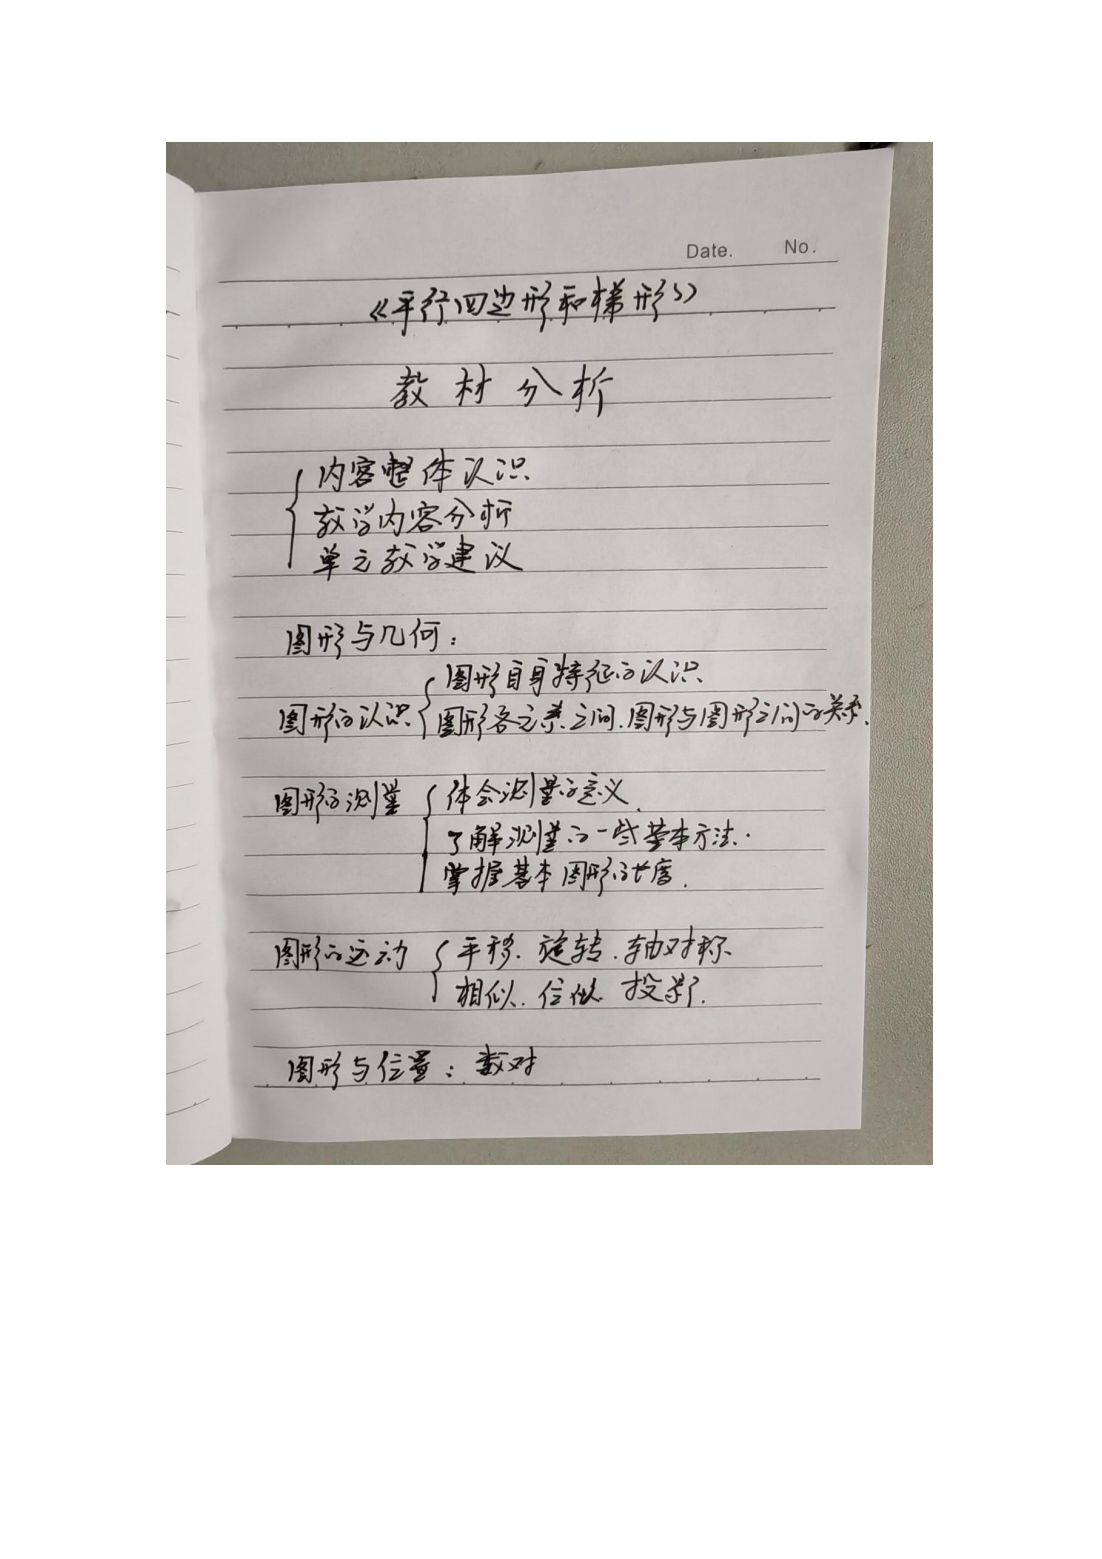 Date. No.
《平行四边形和梯形》
教材分析
内容整体认识
教学内容分析
单元教学建议
图形与几何：
图形自身特征的认识
图形的认识 图形各元素之间.图形与图形之间的关系.
图形的测量 体会测量的意义.
了解测量的一些基本方法.
掌握基本图形的长度.
图形的运动 平移.旋转.轴对称
相似.位似.投影.
图形与位置：数对